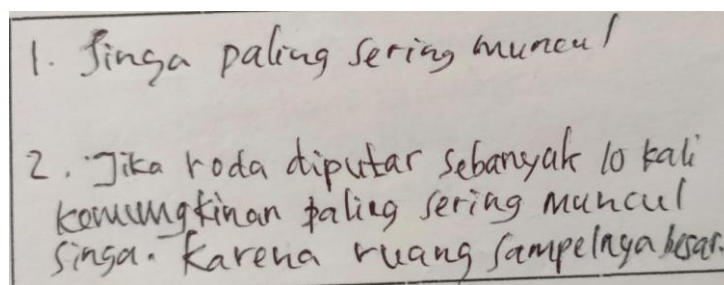 1. Singa paling sering muncul
2. Jika roda diputar sebanyak 10 kali
kemungkinan paling sering muncul
singa. Karena ruang sampelnya besar.